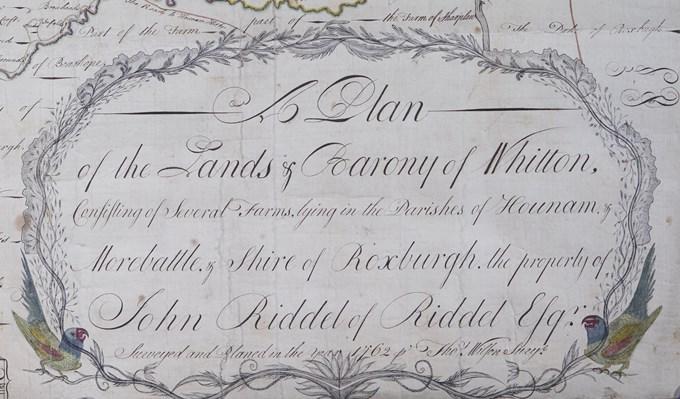 Part of the Farm
part of
the Farm of Sharplaw
The Duke of Roxburgh
of
A Plan
of the Lands & Barony of Whitton,
Consisting of Several Farms, lying in the Parishes of Hounam, &
Morebattle, & Shire of Roxburgh, the property of
John Riddel of Riddel Esqr.
Surveyed and Planed in the year 1762 pr. Thos. Wilson Survr.